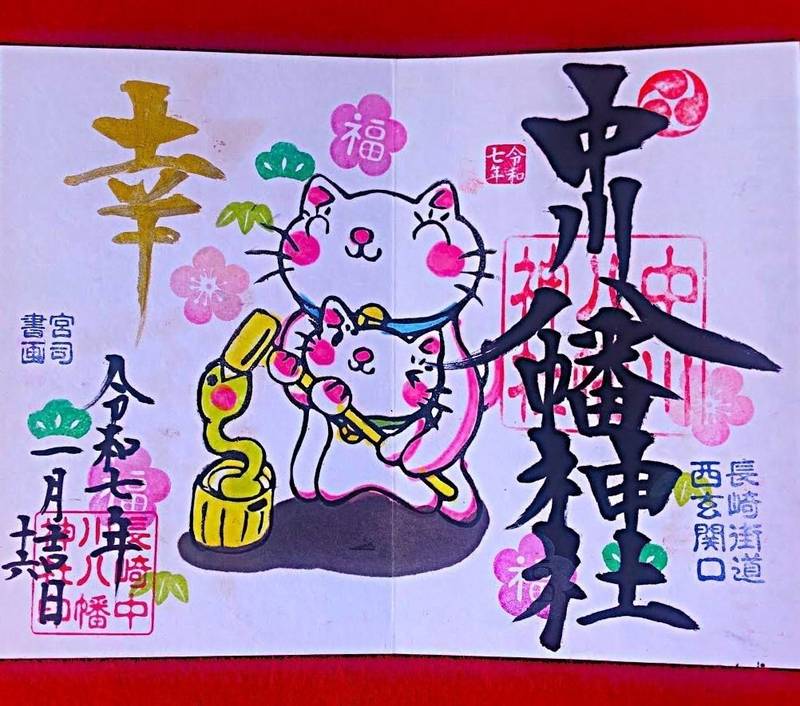 中川八幡神社
令和七年
中川八幡神社
長崎街道
西玄関口
福
福
幸
宮司
書画
令和七年
一月吉日
十六
福
長崎中川八幡神社印